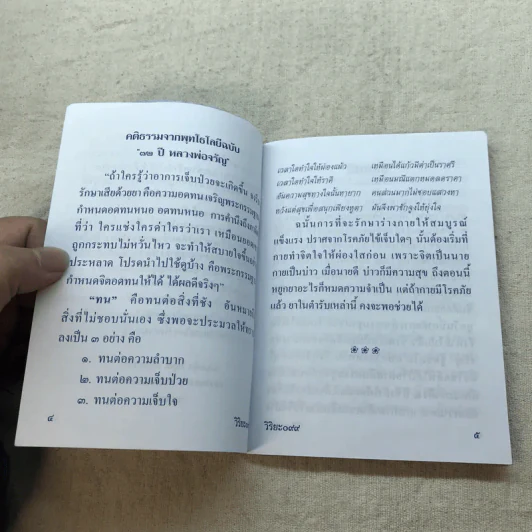 คติธรรมจากพุทโธโลยีฉบับ
"๓๒ ปี หลวงพ่อจรัญ"
"ถ้าใครรู้ว่าอาการเจ็บป่วยจะเกิดขึ้น
รักษาเสียด้วยยา คือความอดทน เจริญพระกรรมฐาน
กำหนดอดทนหนอ อดทนหนอ การคำนึงถึง
ที่ว่า ใครแช่งใครด่าใครว่าเรา เหมือนยอด
ถูกกระทบไม่หวั่นไหว จะทำให้สบายใจขึ้น
ประหลาด โปรดนำไปใช้ดูบ้าง คือพระกรรมฐาน
กำหนดจิตอดทนให้ได้ ได้ผลดีจริงๆ"
"ทน" คือทนต่อสิ่งที่ชัง
สิ่งที่ไม่ชอบนั่นเอง ซึ่งพอจะประมวลให้
ลงเป็น ๓ อย่าง คือ
๑. ทนต่อความลำบาก
๒. ทนต่อความเจ็บป่วย
๓. ทนต่อความเจ็บใจ
๔
วิริยะ
เวลาใดทำใจให้ผ่องแผ้ว เหมือนได้แก้วมีค่าเป็นราศรี
เวลาใดทำใจให้ราคี เหมือนมณีแตกหมดลดราคา
อันความสุขทางใจนั้นหายาก คนส่วนมากไม่ชอบแสวงหา
หวังแต่สุขเพื่อสนุกเพียงหูตา มันจึงพาชักจูงให้ยุ่งใจ
ฉนั้นการที่จะรักษาร่างกายให้สมบูรณ์
แข็งแรง ปราศจากโรคภัยไข้เจ็บใดๆ นั้นต้องเริ่มที่
กายทำจิตใจให้ผ่องใสก่อน เพราะจิตเป็นนาย
กายเป็นบ่าว เมื่อนายดี บ่าวก็มีความสุข ถึงตอนนี้
หยูกยาอะไรก็หมดความจำเป็น แต่ถ้ากายมีโรคภัย
แล้ว ยาในตำรับเหล่านี้ คงจะพอช่วยได้
วิริยะ๐๙๙
๕